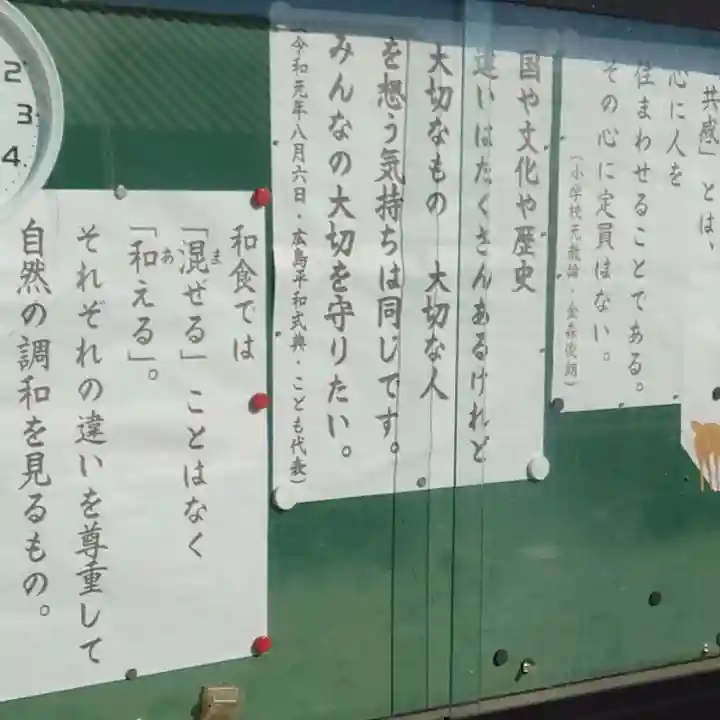 「共感」とは、
心に人を
住まわせることである。
その心に定員はない。
(小学校元教諭・金森俊朗)
国や文化や歴史
違いはたくさんあるけれど
大切なもの 大切な人
を想う気持ちは同じです。
みんなの大切を守りたい。
(令和元年八月六日・広島平和式典・こども代表)
和食では
「混ぜる」ことはなく
ま
「和える」。
あ
それぞれの違いを尊重して
自然の調和を見るもの。
2
3
4